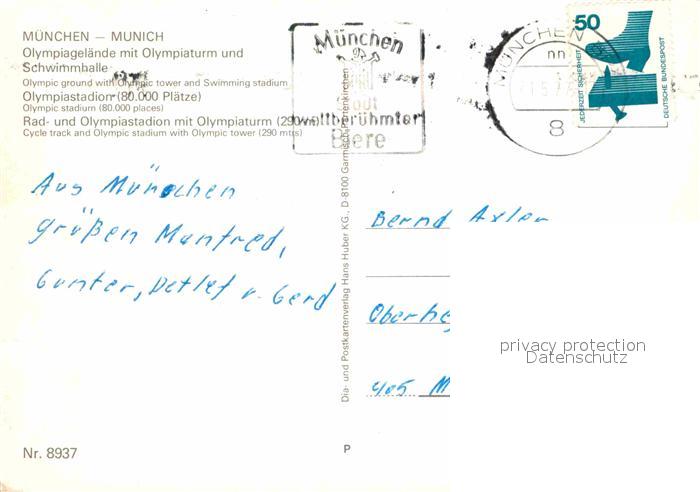 MÜNCHEN — MUNICH
Olympiagelände mit Olympiaturm und
Schwimmhalle
Olympic ground with Olympic tower and Swimming stadium
Olympiastadion (80.000 Plätze)
Olympic stadium (80.000 places)
Rad- und Olympiastadion mit Olympiaturm (290 m)
Cycle track and Olympic stadium with Olympic tower (290 mtrs)
München
Stadt
weltberühmter
Biere
MÜNCHEN
nn
8
50
JEDERZEIT SICHERHEIT
DEUTSCHE BUNDESPOST
Aus München
grüßen Manfred,
Gunter, Detlef u. Gerd
Dia- und Postkartenverlag Hans Huber KG., D-8100 Garmisch-Partenkirchen
Bernd Axler
Oberhe
405 M
privacy protection
Datenschutz
Nr. 8937
P